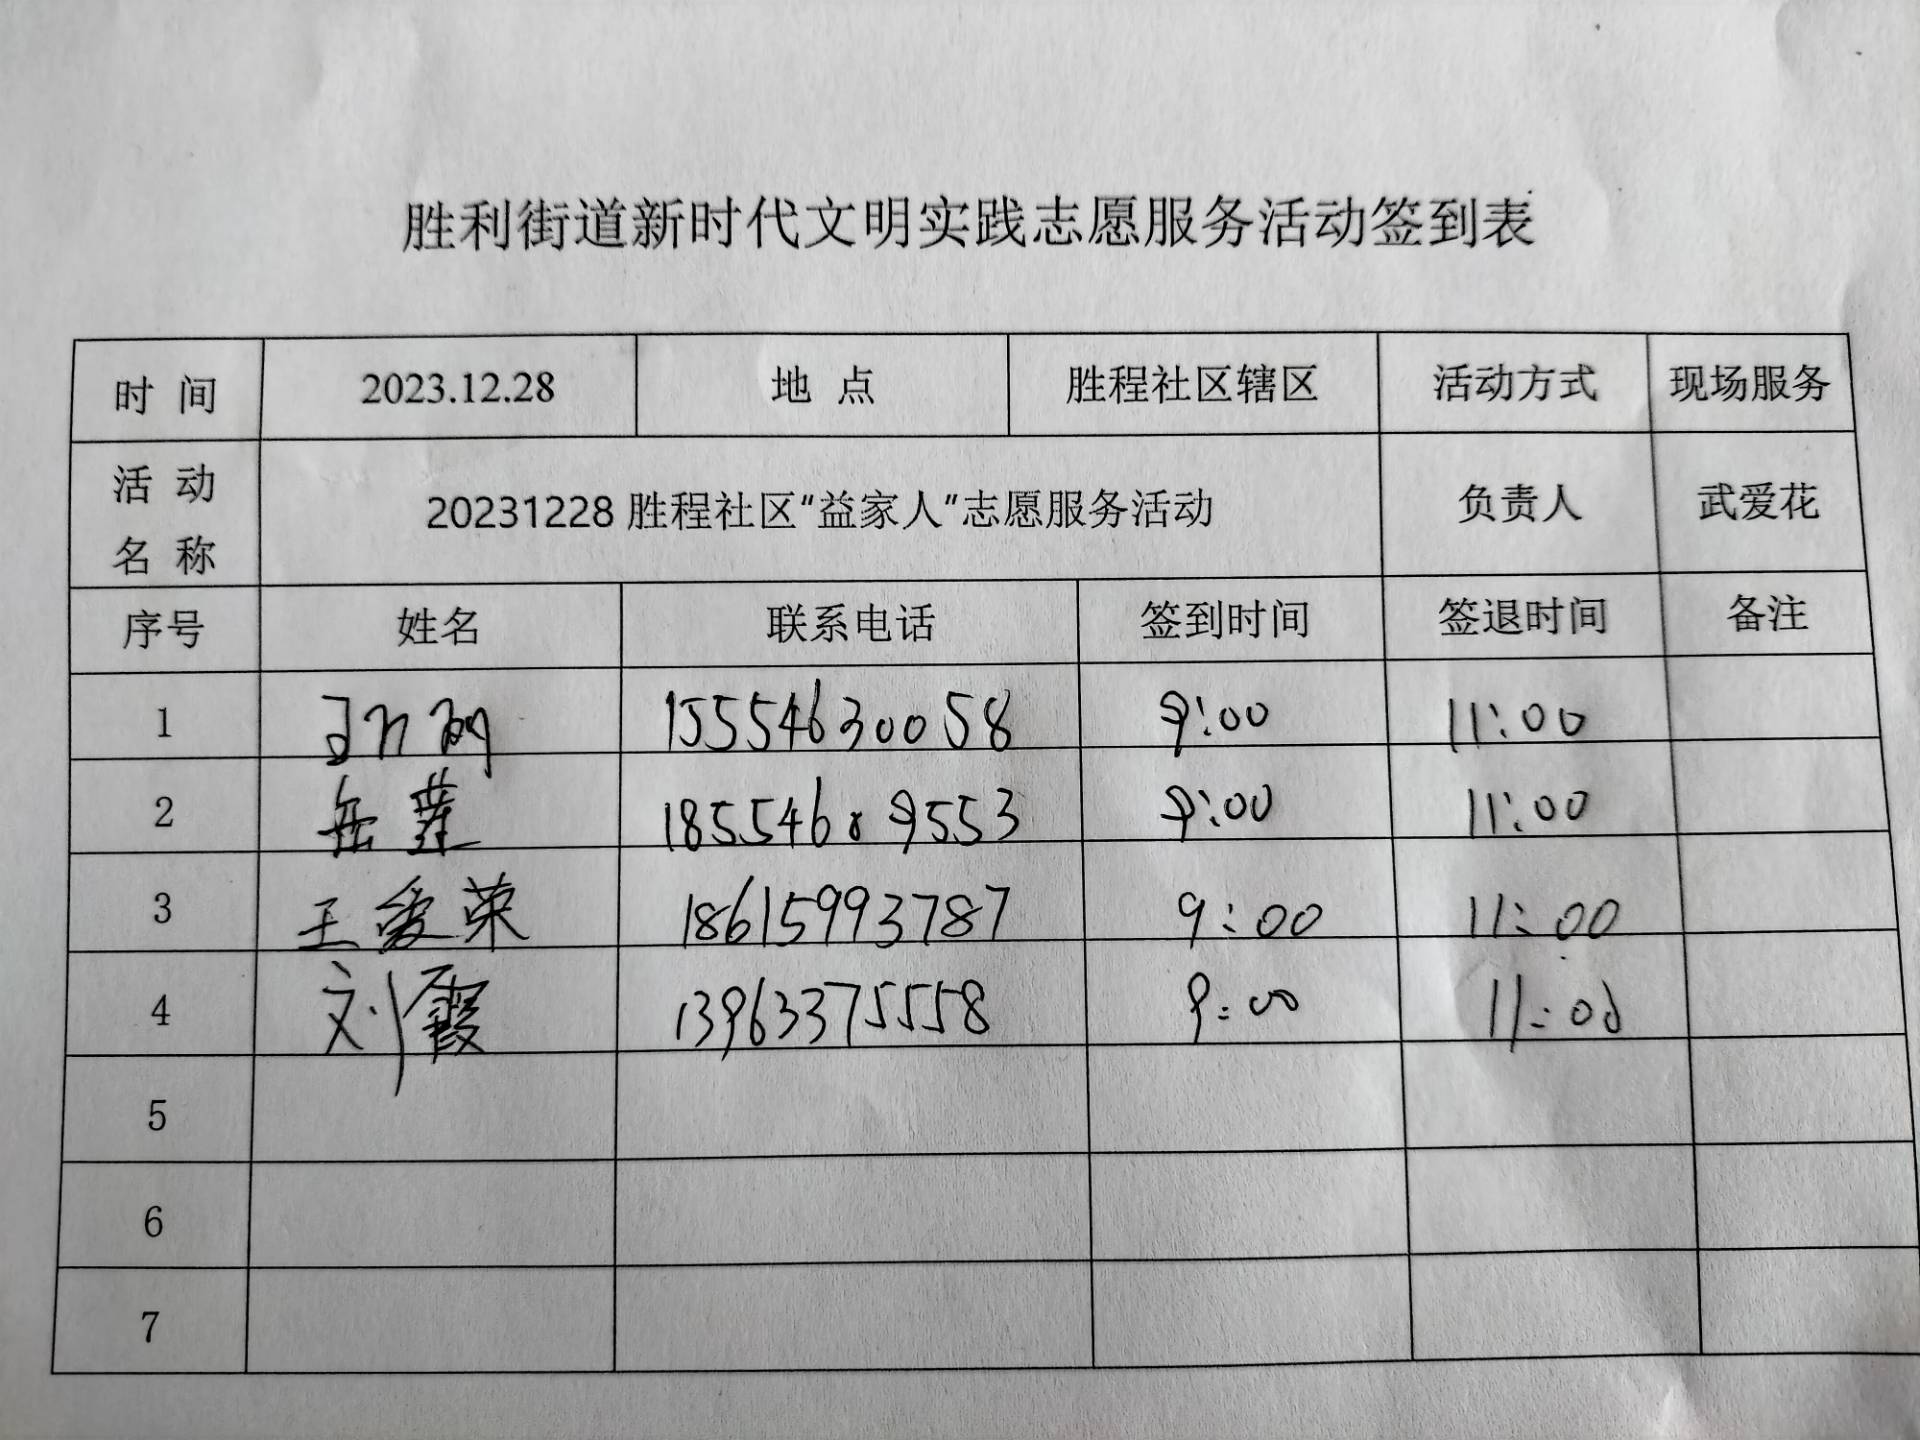 胜利街道新时代文明实践志愿服务活动签到表
时 间 2023.12.28 地 点 胜程社区辖区 活动方式 现场服务
活 动 名 称 20231228 胜程社区“益家人”志愿服务活动 负责人 武爱花
序号 姓名 联系电话 签到时间 签退时间 备注
1 15554630058 9:00 11:00
2 岳 18554609553 9:00 11:00
3 王爱荣 18615993787 9:00 11:00
4 刘霞 13963375558 9:00 11:00
5
6
7